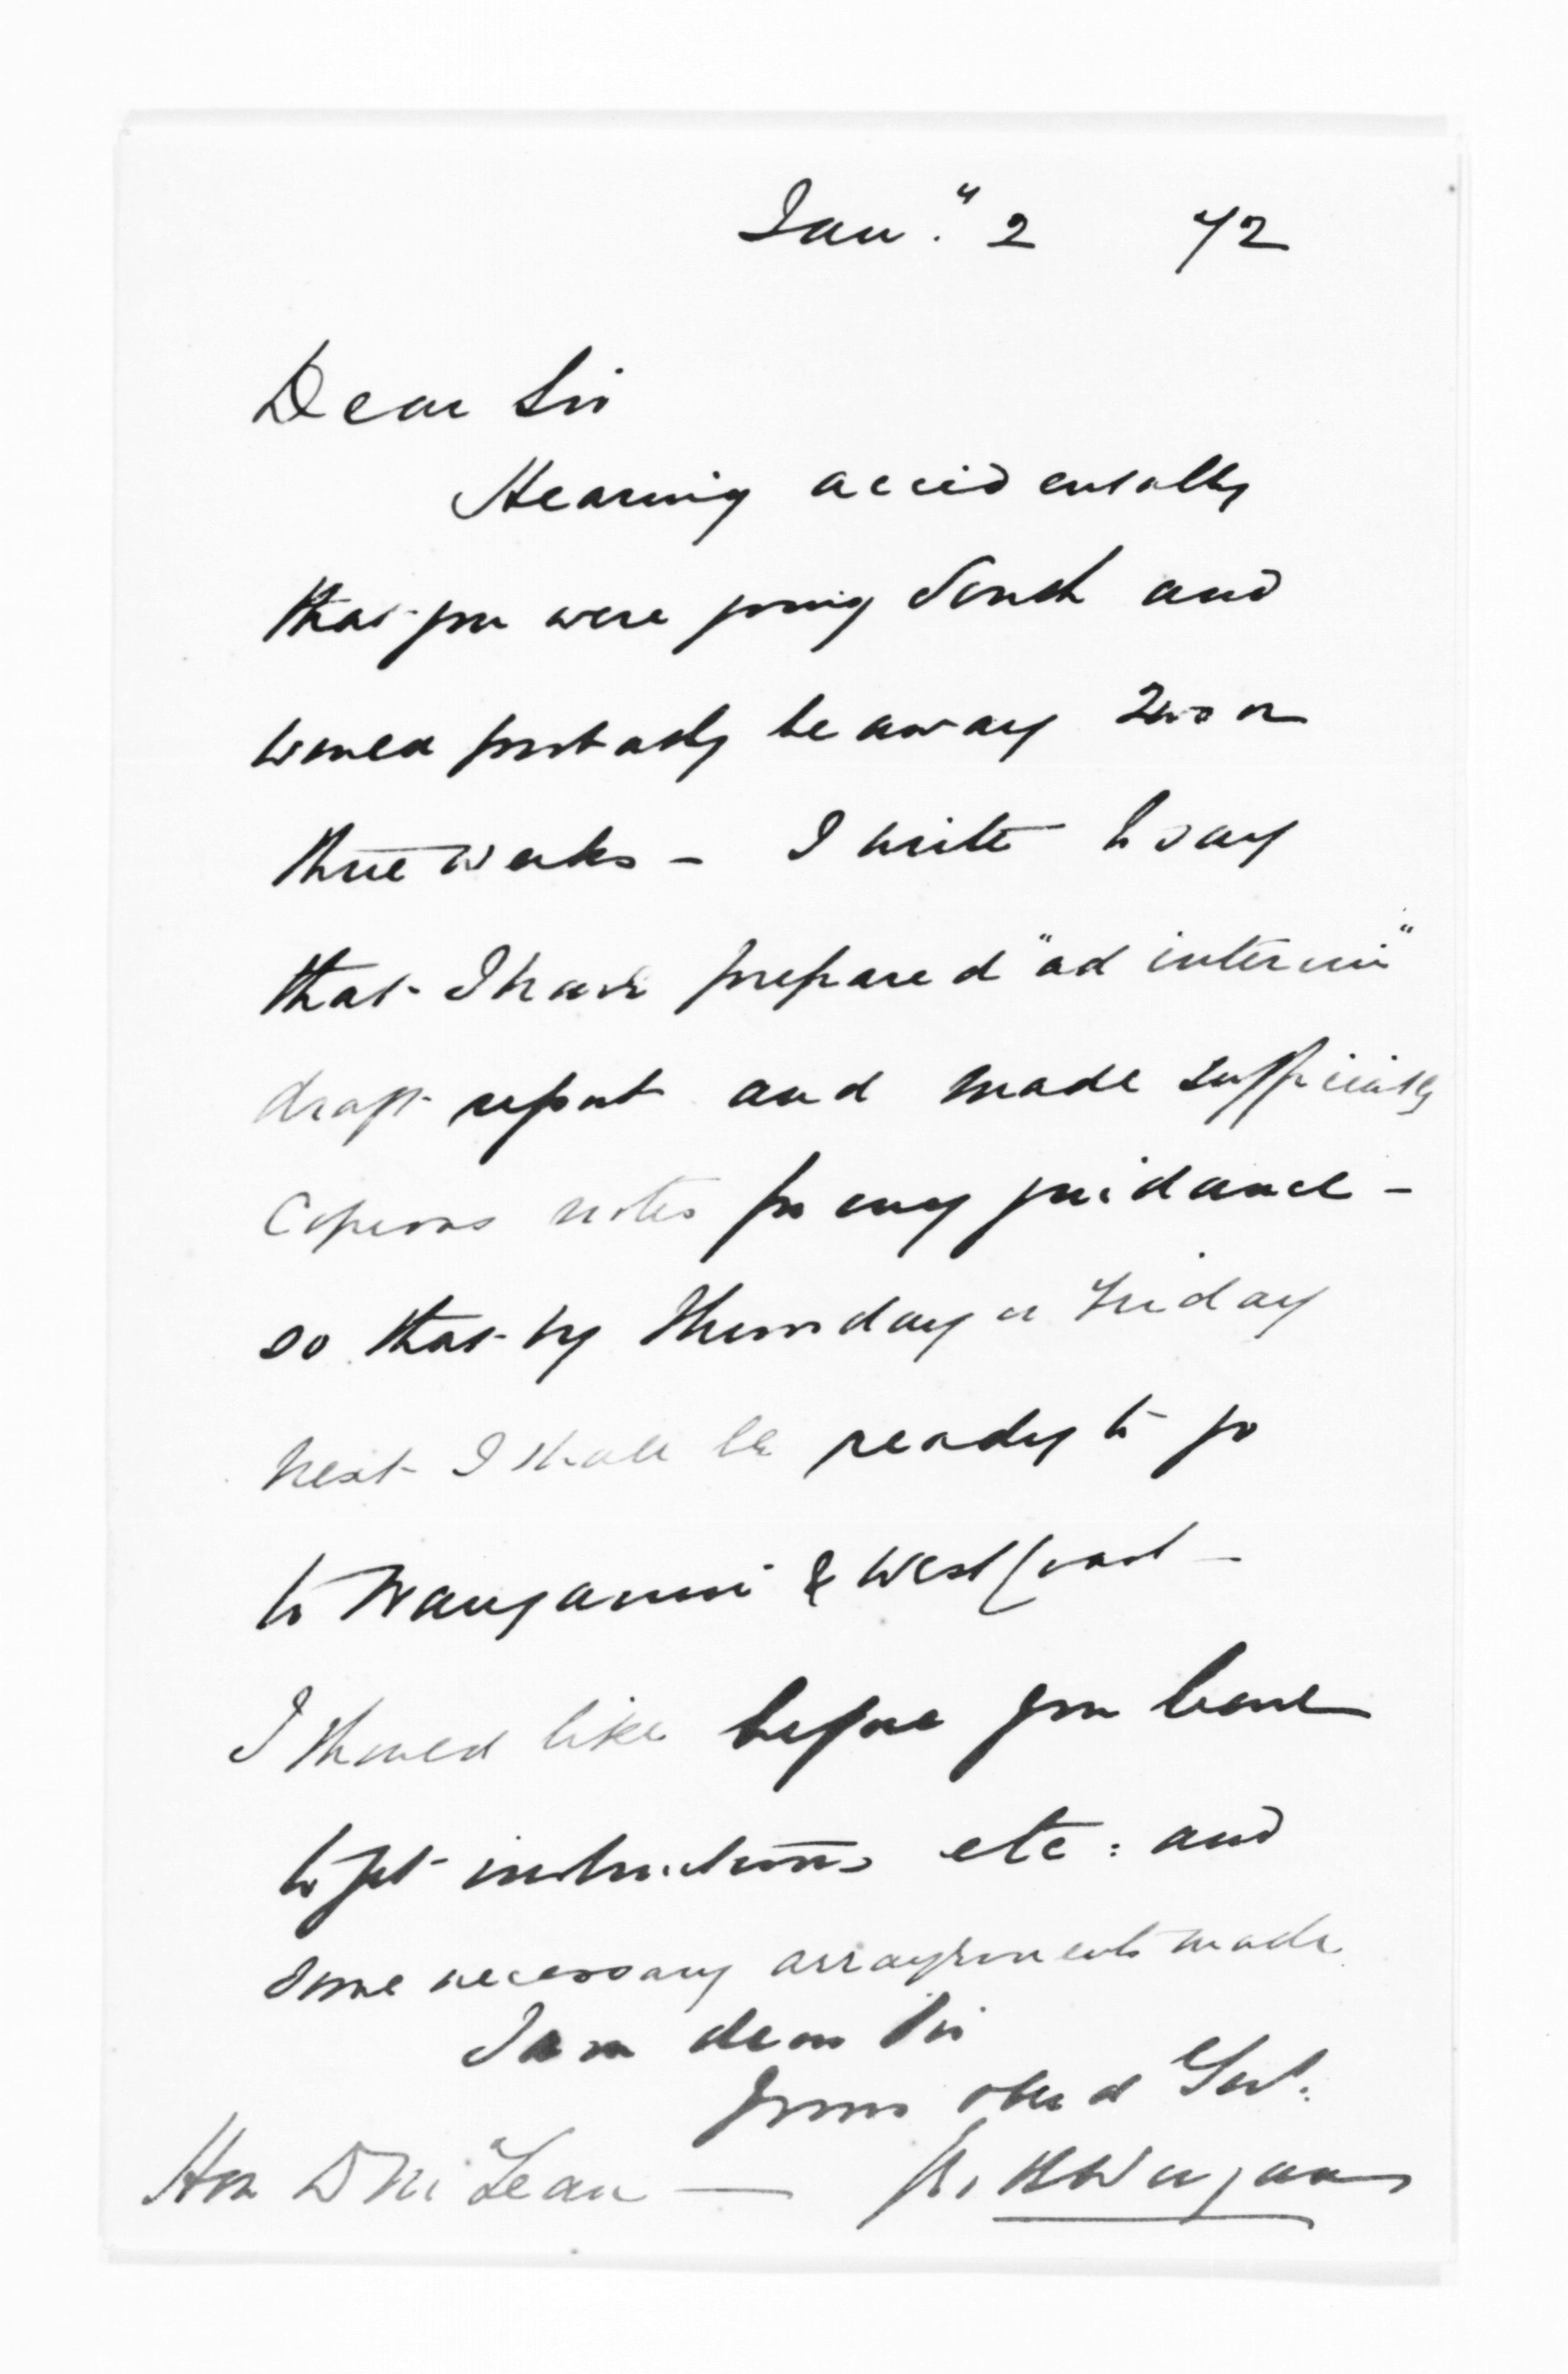 Jany. 2 72
Dear Sir
Hearing accidentally
that you were going South and
would probably be away two or
three weeks - I write to say
that I have prepared "ad interim"
draft report and made sufficiently
copious notes for my guidance -
so that by Thursday or Friday
next I shall be ready to go
to Wanganui & West Coast -
I should like before you leave
to get instructions etc: and
some necessary arrangements made.
I am dear Sir
yours obed Svt.
Hon D McLean —